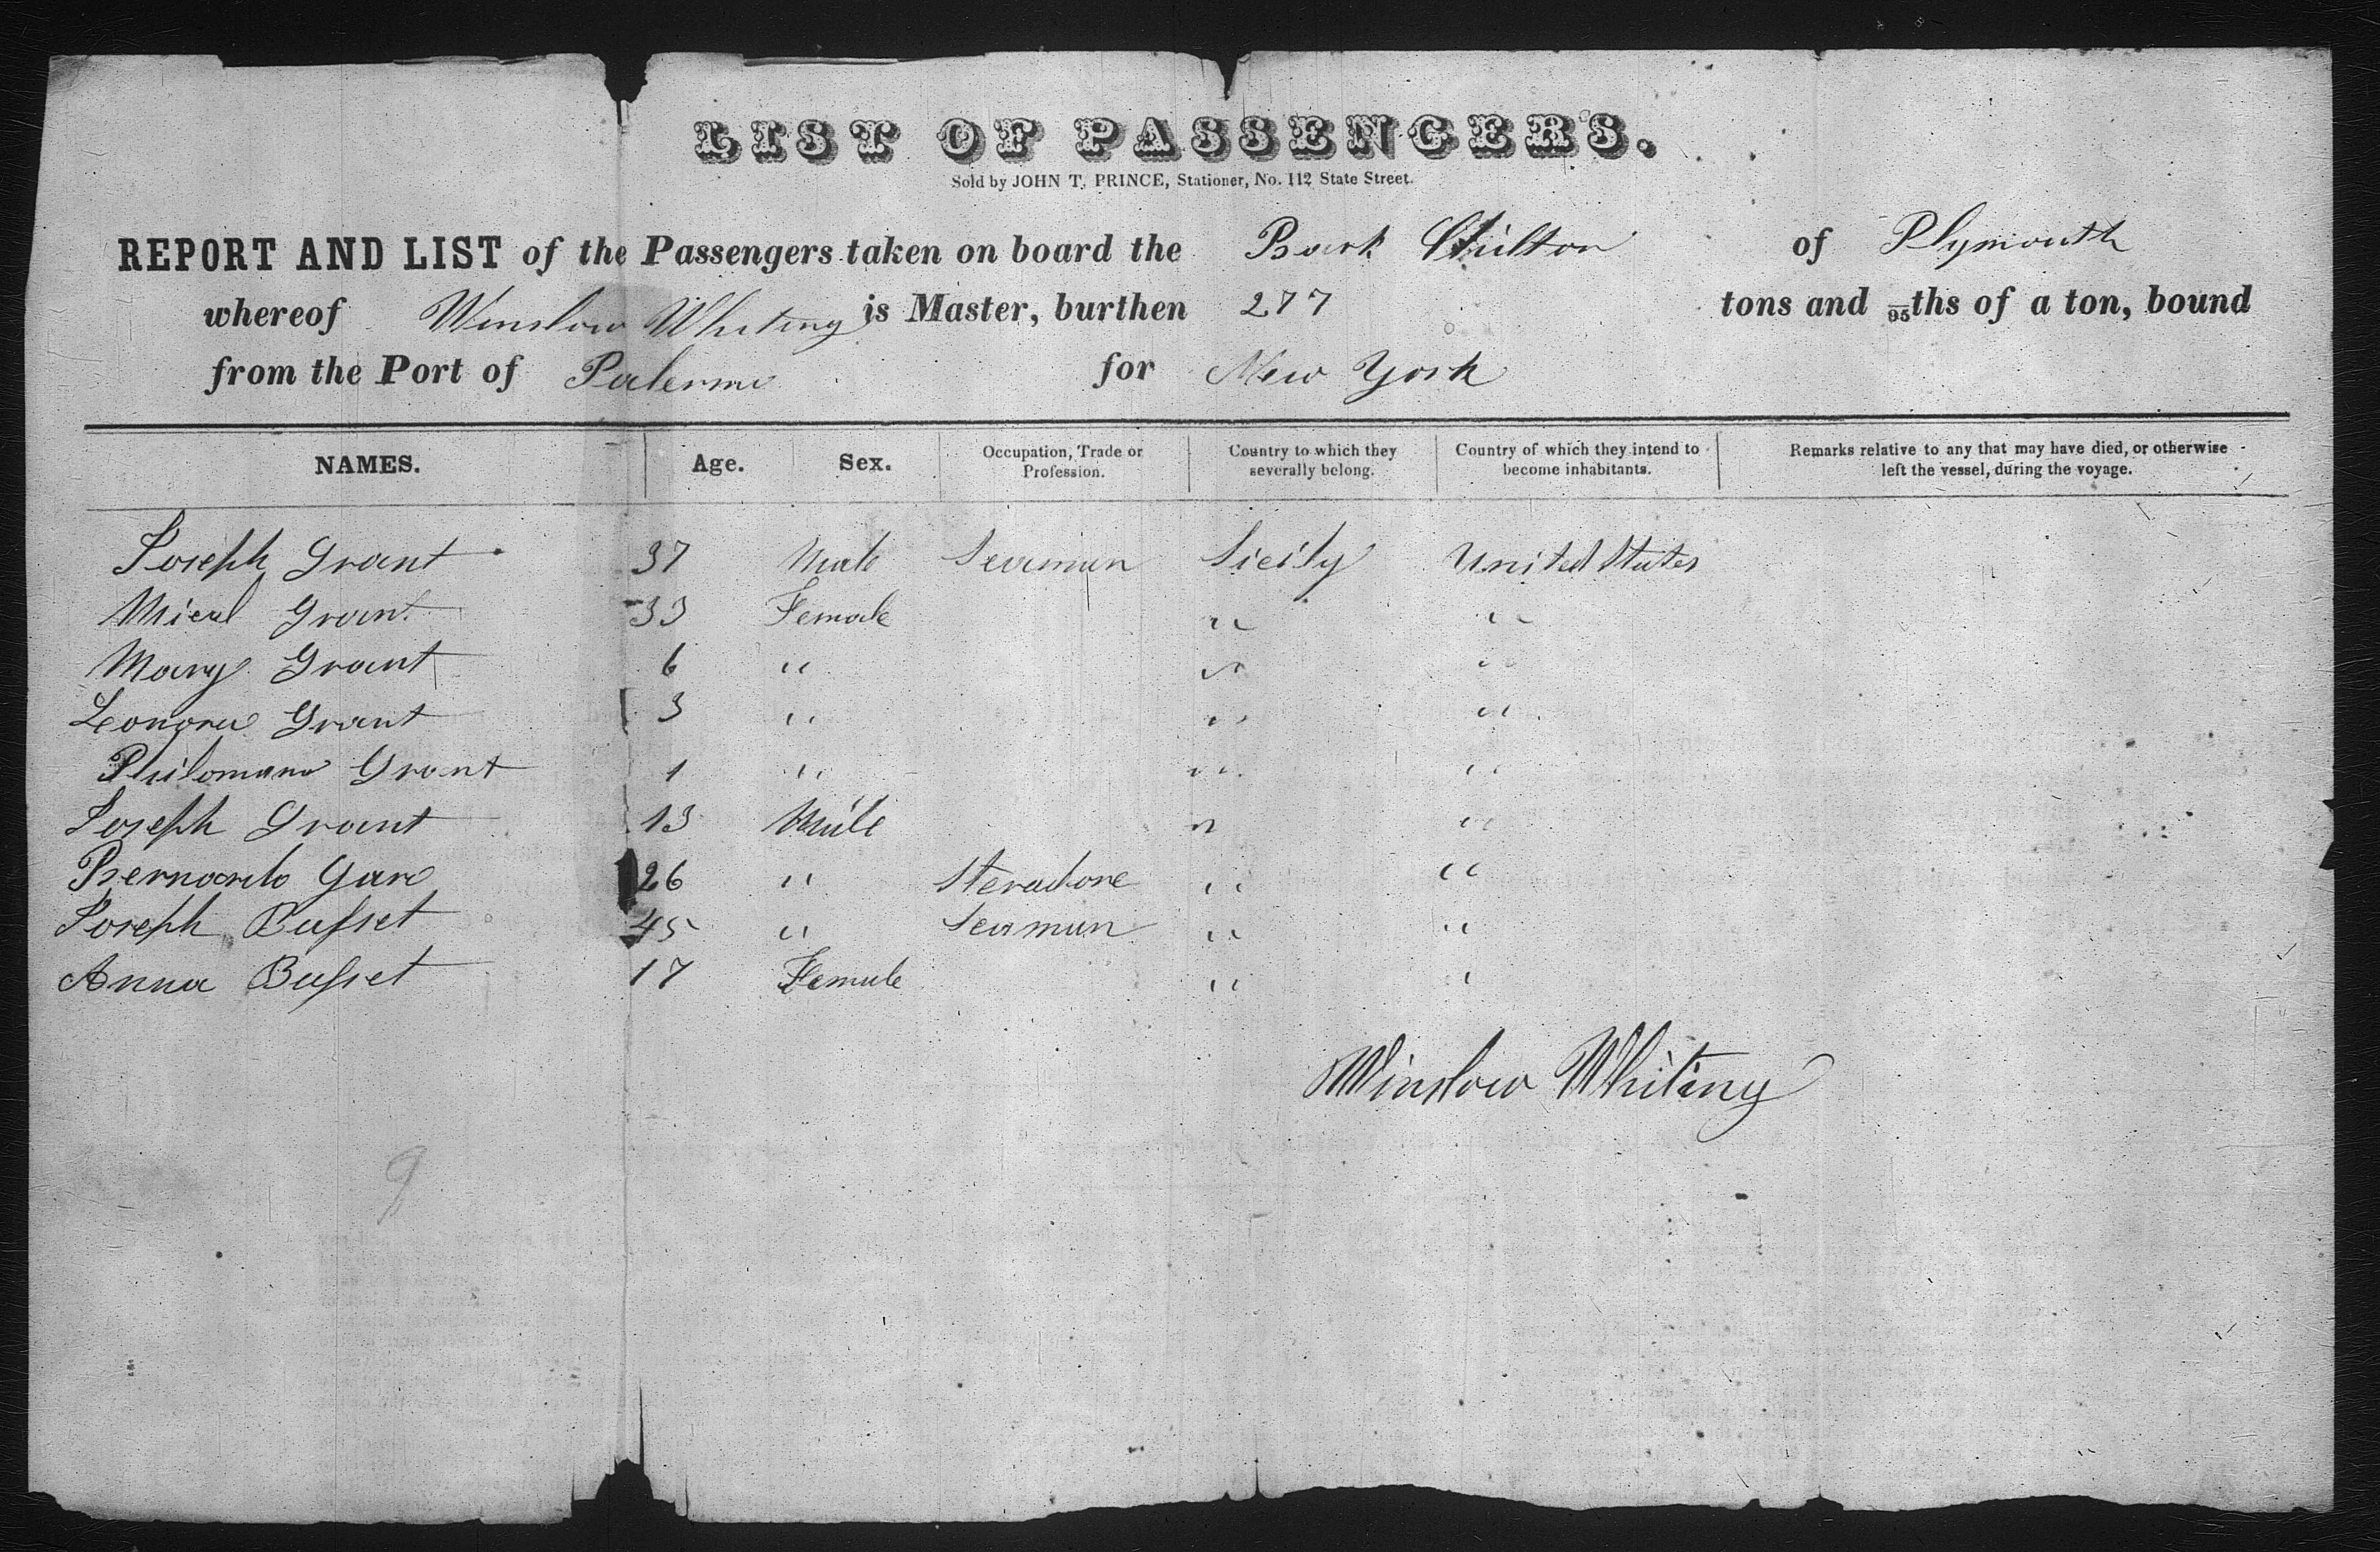 LIST OF PASSENGERS.
Sold by JOHN T. PRINCE, Stationer, No. 112 State Street.
REPORT AND LIST of the Passengers taken on board the Bark Chilton of Plymouth
whereof Winslow Whiting is Master, burthen 277 tons and 95ths of a ton, bound
from the Port of Palermo for New York
NAMES. Age. Sex. Occupation, Trade or Profession. Country to which they severally belong. Country of which they intend to become inhabitants. Remarks relative to any that may have died, or otherwise left the vessel, during the voyage.
Joseph Grant 37 Male Seaman Sicily United States
Mical Grant 33 Female " "
Mary Grant 6 " " "
Leonora Grant 3 " " "
Philomana Grant 1 " " "
Joseph Grant 13 Male " "
Bernardo Garo 26 " Stevadore " "
Joseph Busset 45 " Seaman " "
Anna Busset 17 Female " "
Winslow Whiting
9